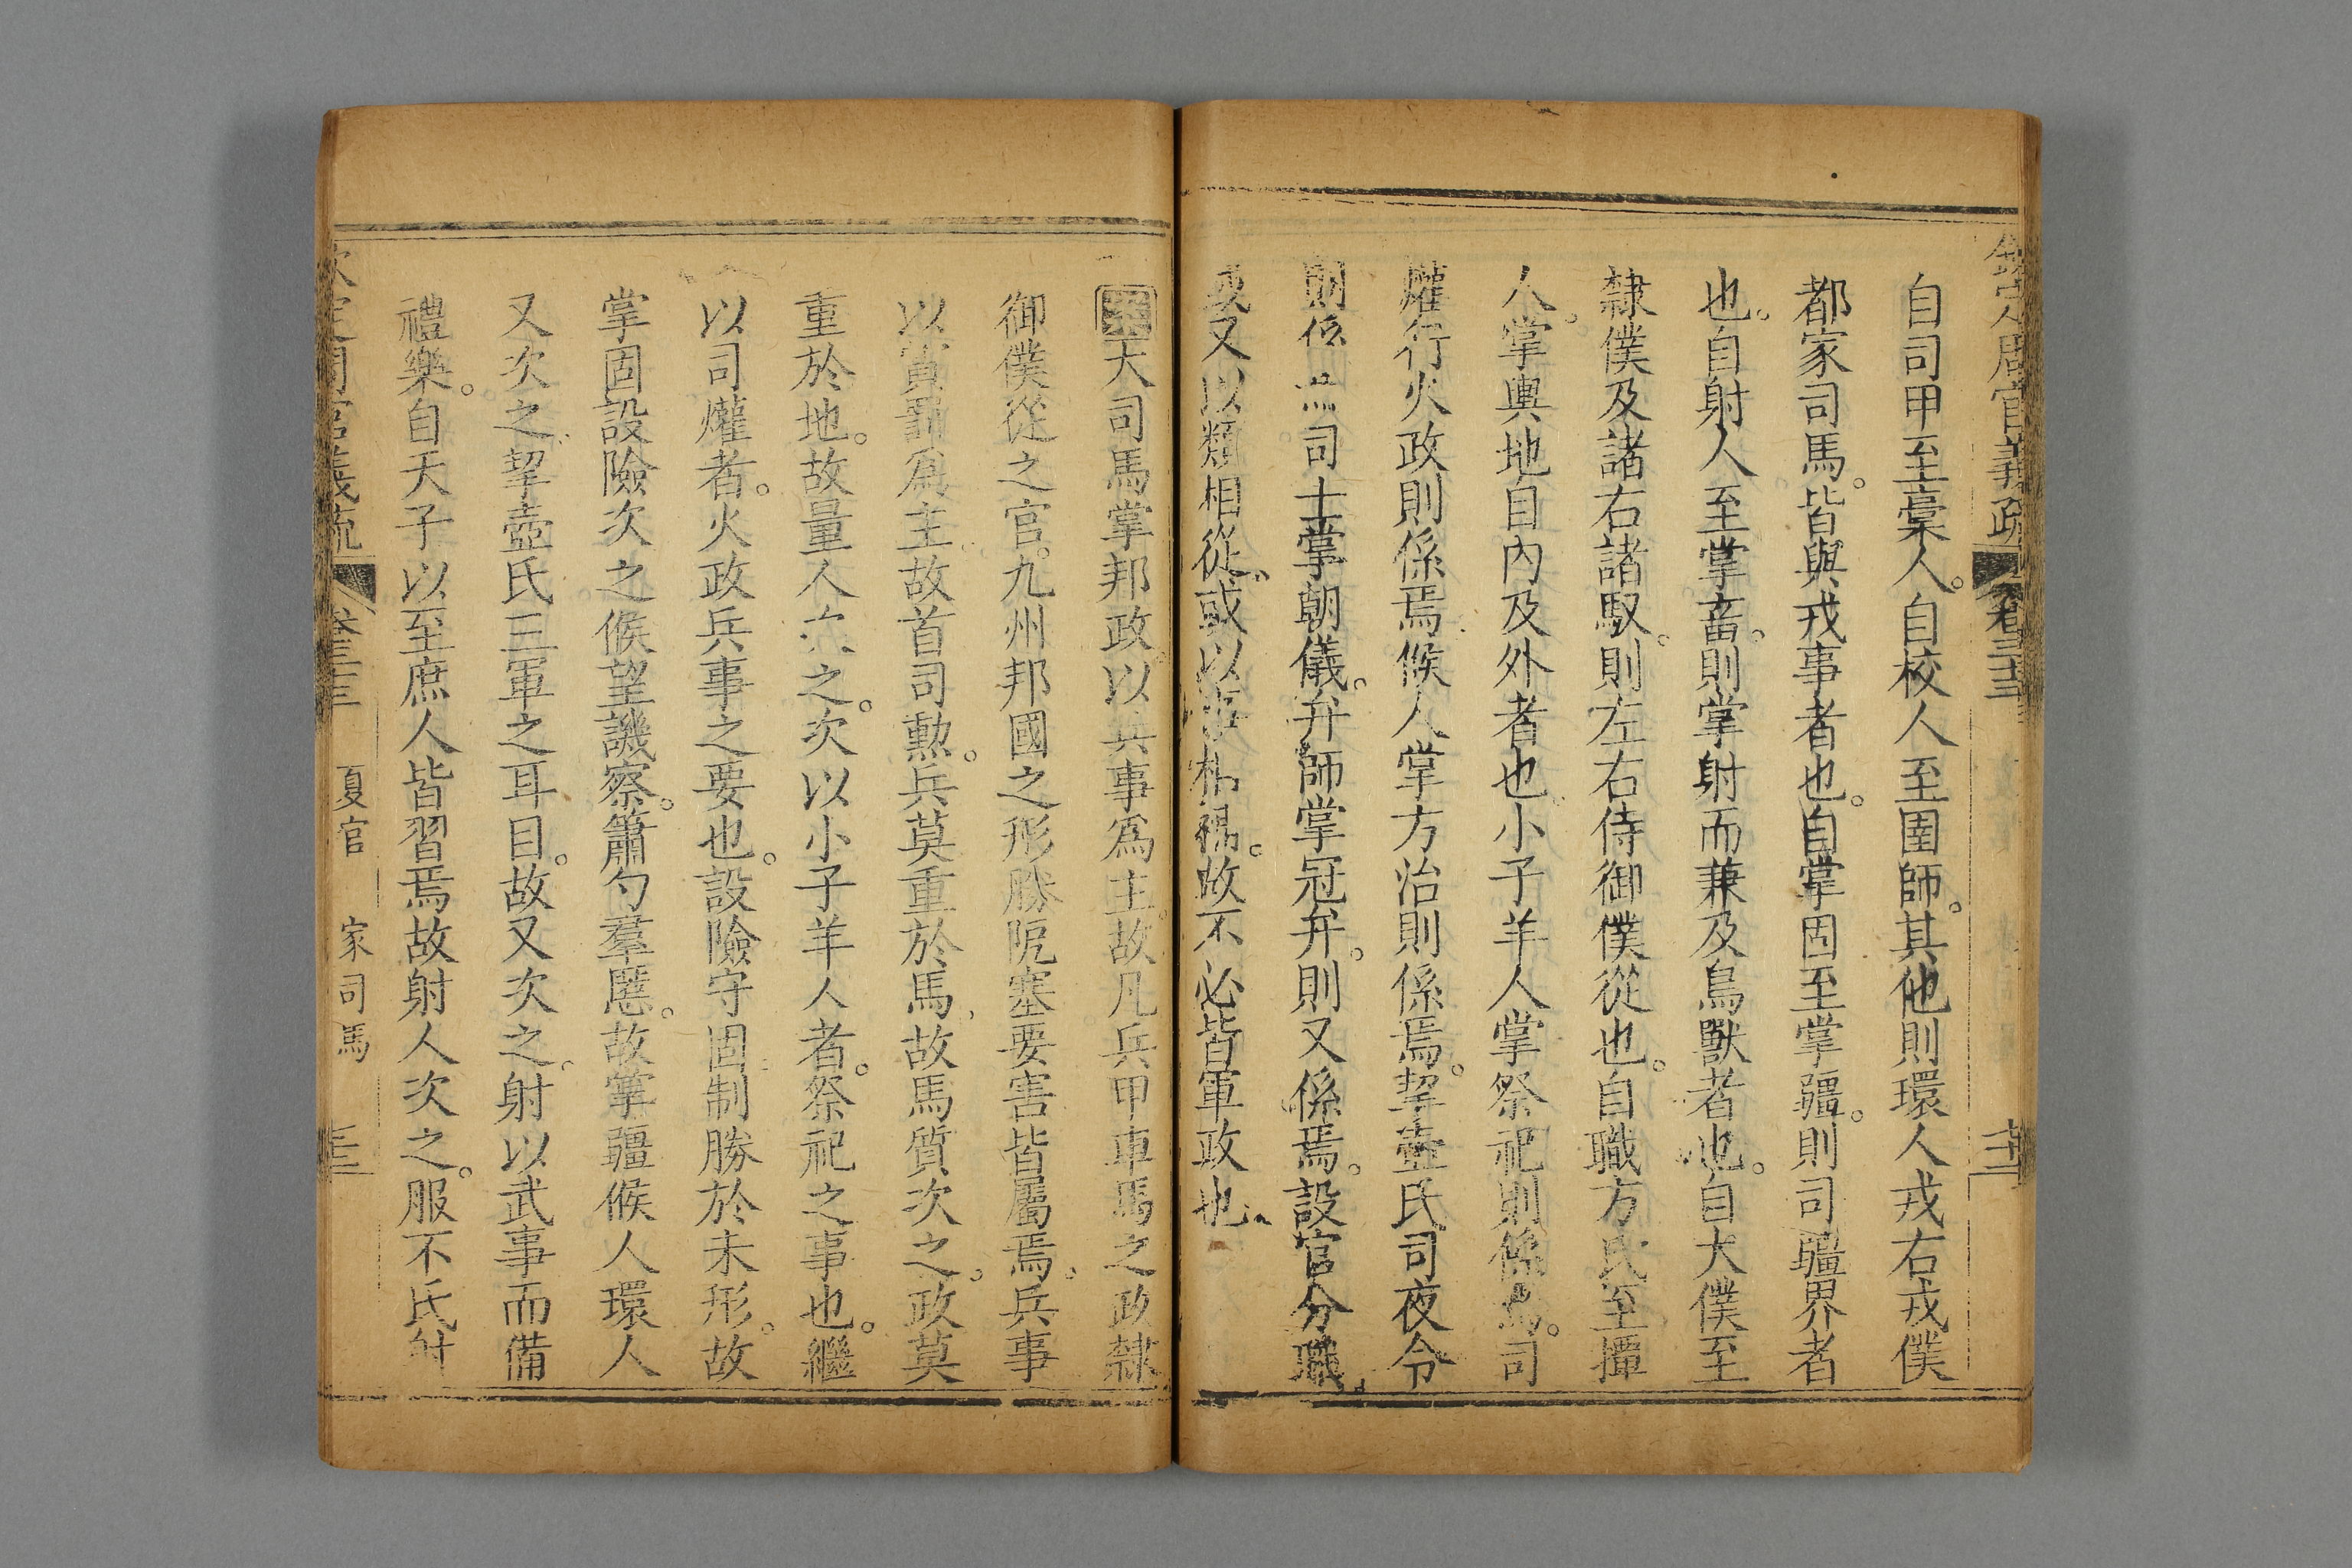 欽定周官義疏 卷二十三
自司甲至稾人。自校人至圉師。其他則環人戎右戎僕
都家司馬。皆與戎事者也。自掌固至掌疆。則司疆界者
也。自射人至掌畜。則掌射而兼及鳥獸者也。自大僕至
隸僕及諸右諸馭。則左右侍御僕從也。自職方氏至撢
人。掌輿地自內及外者也。小子羊人掌祭祀則係焉。司
爟行火政則係焉。候人掌方治則係焉。挈壺氏司夜令
則係焉。司士掌朝儀。弁師掌冠弁。則又係焉。設官分職。
或又以類相從。或以事相得。故不必皆軍政也。
案大司馬掌邦政以兵事為主。故凡兵甲車馬之政隸
御僕從之官。九州邦國之形勝阨塞要害皆屬焉。兵事
以賞罰為主。故首司勳。兵莫重於馬。故馬質次之。政莫
重於地。故量人次之。次以小子羊人者。祭祀之事也。繼
以司爟者。火政兵事之要也。設險守固制勝於未形。故
掌固設險次之。候望譏察。簫勺羣慝。故掌疆候人環人
又次之。挈壺氏三軍之耳目。故又次之。射以武事而備
禮樂。自天子以至庶人皆習焉。故射人次之。服不氏射
欽定周官義疏 卷二十三 夏官 家司馬